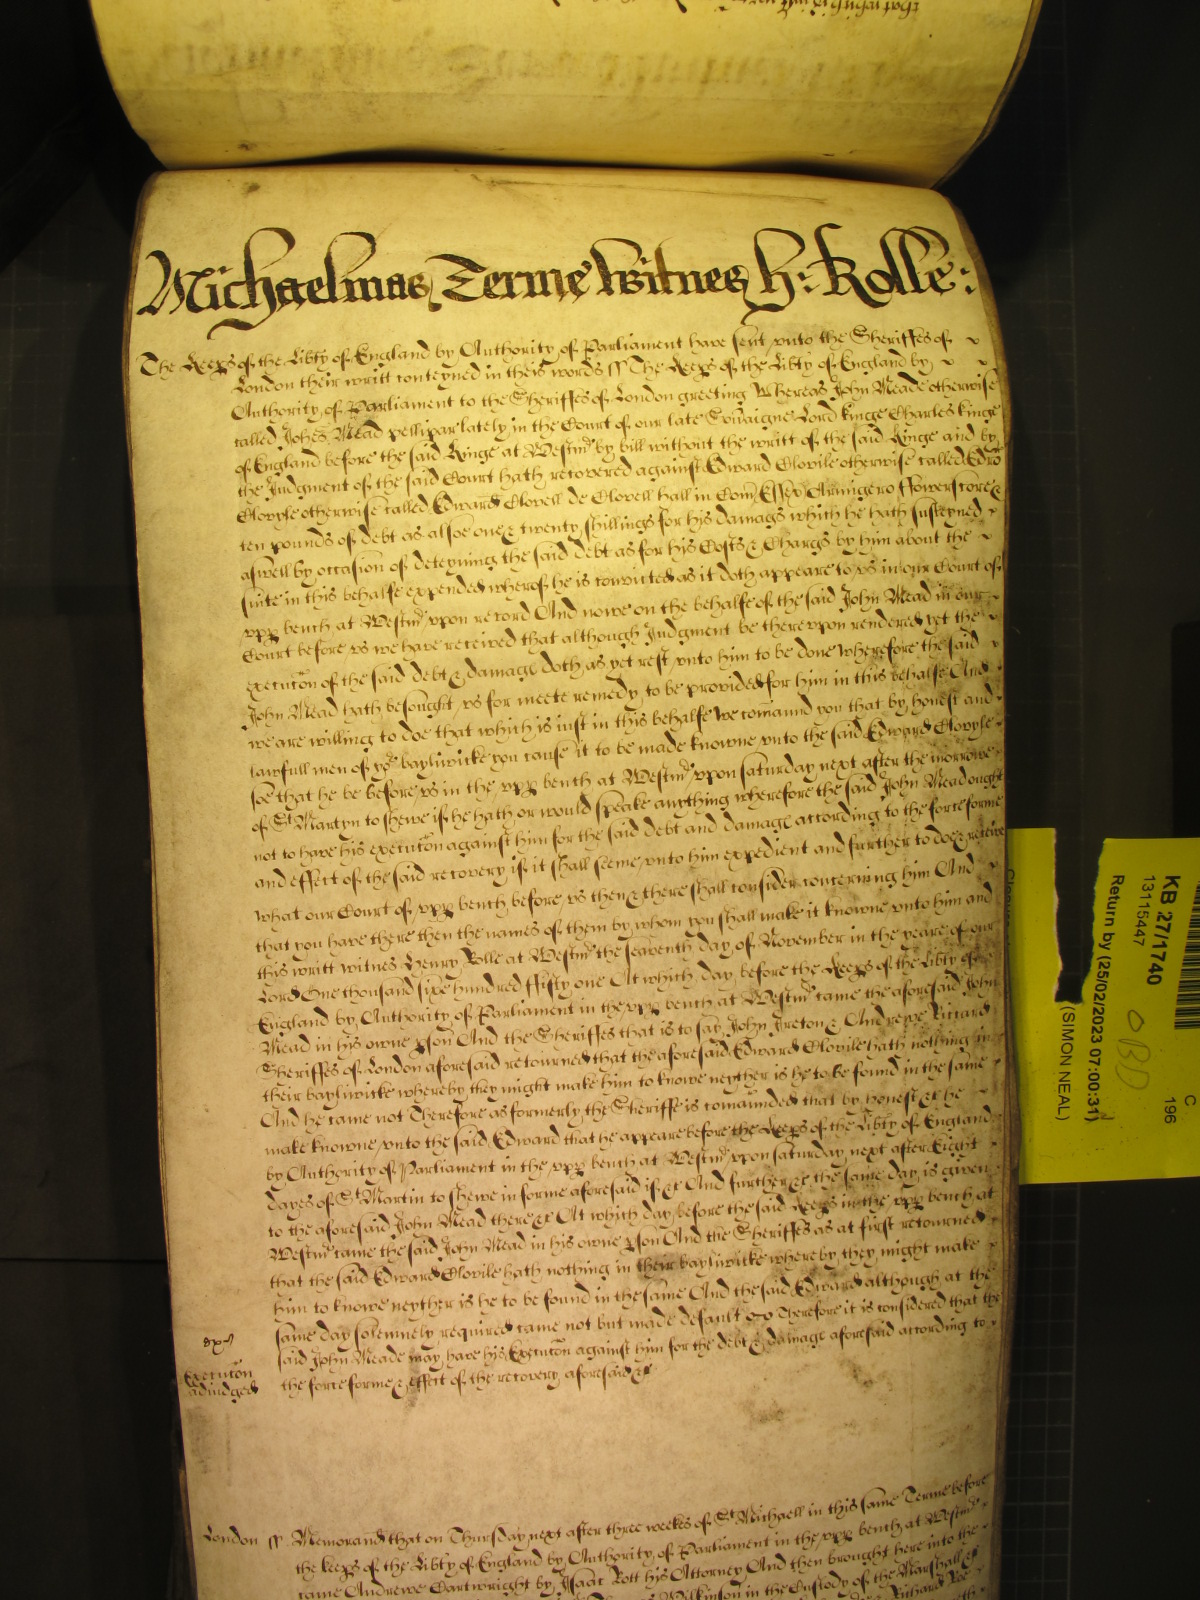 Michaelmas Terme Witnes H: Rolle:
The Keeps of the Libty of England by Authority of Parliament have sent unto the Sheriffes of
London their writt conteyned in theis words ss The Keeps of the Libty of England by
Authority of Parliament to the Sheriffes of London greeting Whereas John Meade otherwise
called Johes Mead pellipar lately in the Court of our late Sovaigne Lord kinge Charles kinge
of England before the said Kinge at Westmr by bill without the writt of the said Kinge and by
the Judgment of the said Court hath recovered against Edward Clovile otherwise called Edro
Clovyle otherwise called Edward Clovell de Clovell hall in Com Essex Armigero ffowerscore &
ten pounds of debt as alsoe one & twenty shillings for his damags which he hath susteyned
aswell by occasion of deteyning the said debt as for his Costs & Chargs by him about the
suite in this behalfe expended wherof he is convicted as it doth appeare to us in our Court of
upp bench at Westmr upon record And nowe on the behalfe of the said John Mead in our
Court before us we have received that although Judgment be thereupon rendered yet the
execucon of the said debt & damage doth as yet rest unto him to be done Wherefore the said
John Mead hath besought us for meete remedy to be provided for him in this behalfe And
we are willing to doe that which is iust in this behalfe We comaund you that by honest and
lawfull men of yor bayliwicke you cause it to be made knowne unto the said Edward Clovyle
soe that he be before us in the upp bench at Westmr upon saturday next after the morrowe
of St Martyn to shewe if he hath or would speake anything wherefore the said John Mead ought
not to have his execucon against him for the said debt and damage according to the force forme
and effect of the said recovery if it shall seeme unto him expedient and further to doe & receive
what our Court of upp bench before us then & there shall consider concerning him And
that you have there then the names of them by whom you shall make it knowne unto him and
this writt witnes Henry Rolle at Westmr the seaventh day of November in the yeare of our
Lord One thousand sixe hundred ffifty one At which day before the Keeps of the Libty of
England by Authority of Parliament in the upp bench at Westmr came the aforesaid John
Mead in his owne pson And the Sheriffes that is to say John Ireton & Andrewe Riccard
Sheriffes of London aforesaid retourned that the aforesaid Edward Clovile hath nothing in
their bayliwicke whereby they might make him to knowe neyther is he to be found in the same
And he came not Therefore as formerly the Sheriffe is comaunded that by honest &c he
make knowne unto the said Edward that he appeare before the Keeps of the Libty of England
by Authority of Parliament in the upp bench at Westmr upon saturday next after Eight
dayes of St Martin to shewe in forme aforesaid if &c And further &c the same day is given
to the aforesaid John Mead there &c At which day before the said Keeps in the upp bench at
Westmr came the said John Mead in his owne pson And the Sheriffes as at first retourned
that the said Edward Clovile hath nothing in their bayliwicke whereby they might make
him to knowe neyther is he to be found in the same And the said Edward although at the
same day solemnely required came not but made default Therefore it is considered that the
said John Meade may have his Execucon against him for the debt & damage aforesaid according to
the force forme & effect of the recovery aforesaid &c
Execucon
adiudged
London ss Memorand that on Thursday next after three weekes of St Michaell in this same Terme before
the keeps of the Libty of England by Authority of Parliament in the upp bench at Westmr
came Andrewe Cartwright by Isaac Rott his Attorney And then brought here into the
in the Custody of the Marshall &c
Richard Roe
KB 27/1740
13115447
Return by (25/02/2023 07:00:31)
(SIMON NEAL)
C
196